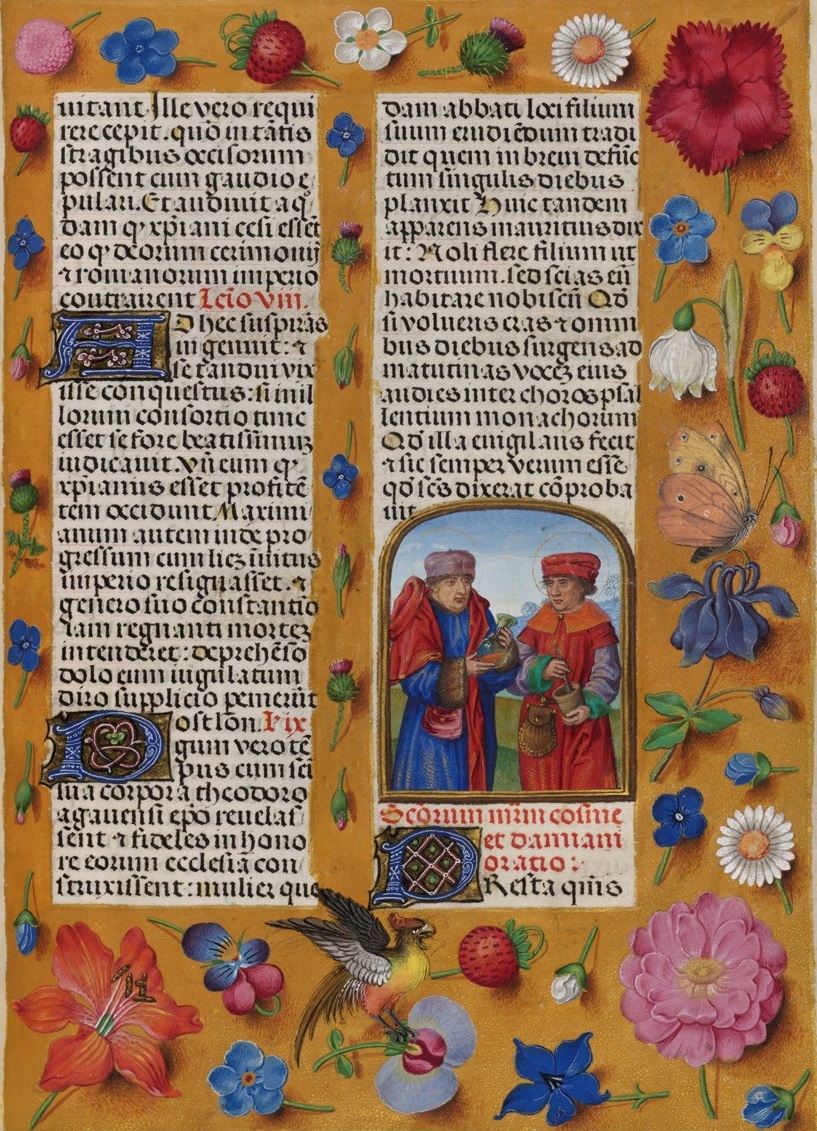 uitant Ille vero requi
rere cepit. quo in tātis
stragibus occisorum
possent cum gaudio e
pulari. Et audiuit a q
dam qꝫ xp̄iani cesi essēt
eo qꝫ deorum cerimoniis
⁊ romanorum imperio
contrairent Lc̄io viii.
Ad hec suspirās
ingemuit: ⁊
se tandiu vix
isse conquestus: si in il
lorum consortio tunc
esset se fore beatissimuꝫ
iudicauit. Vn̄ cum qꝫ
xp̄ianus esset profitē
tem occidunt Maximi
anum autem inde pro
gressum cum licꝫ inuitus
imperio resignasset. ⁊
genero suo constantio
iam regnanti morteꝫ
intenderet: deprehēso
dolo eum iugulatum
diro supplicio pemerūt
Post lōn. ix
qum vero tē
pus cum sci
sua corpora theodoro
agauensi ep̄o reuelas
sent ⁊ fideles in hono
re eorum ecclesiā con
struxissent: mulier que
dam abbati loci filium
suum erudiēdum tradi
dit quem in breui defūc
tum singulis diebus
planxit Huic tandem
apparens mauritius dix
it: Noli flere filium ut
mortuum. sed scias eū
habitare nobiscū Qd̄
si volueris cras ⁊ omni
bus diebus surgens ad
matutinas voceꝫ eius
audies inter choros psal
lentium monachorum
Qd̄ illa euigilans fecit
⁊ sic semper verum esse
qd̄ scs̄ dixerat cōproba
uit.
Scōrum mr̄m cosme
et damiani
oratio:
PResta qm̄s